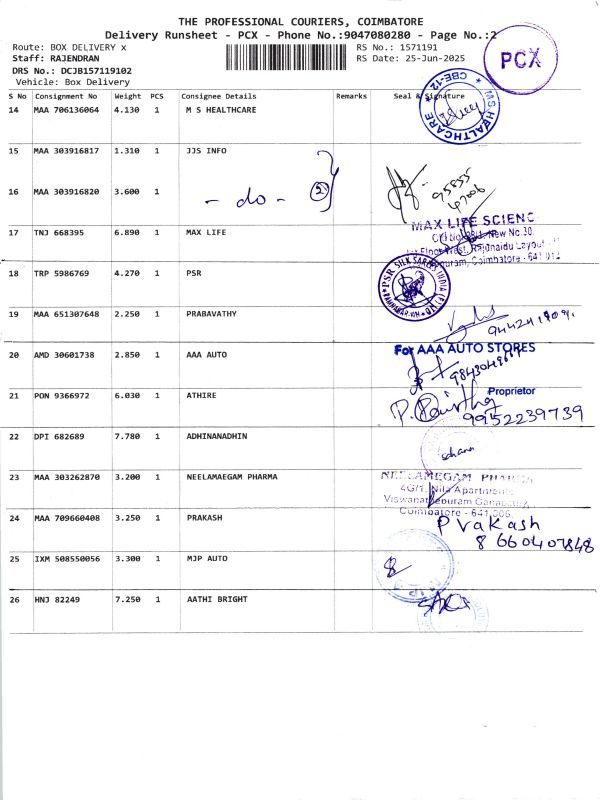 THE PROFESSIONAL COURIERS, COIMBATORE
Delivery Runsheet - PCX - Phone No.:9047080280 - Page No.:2
Route: BOX DELIVERY x
RS No.: 1571191
Staff: RAJENDRAN
RS Date: 25-Jun-2025
DRS No.: DCJB157119102
Vehicle: Box Delivery
PCX
S No Consignment No Weight PCS Consignee Details Remarks Seal & Signature
14 MAA 706136064 4.130 1 M S HEALTHCARE
M.S. HEALTHCARE CBE-12
15 MAA 303916817 1.310 1 JJS INFO
16 MAA 303916820 3.600 1 - do - 2
95855
17 TNJ 668395 6.890 1 MAX LIFE
MAX LIFE SCIENC
New No.30,
Coimbatore - 641 012
18 TRP 5986769 4.270 1 PSR
PSR SILK SAREES INDIA (P)
19 MAA 651307648 2.250 1 PRABAVATHY
20 AMD 30601738 2.850 1 AAA AUTO
For AAA AUTO STORES
Proprietor
21 PON 9366972 6.030 1 ATHIRE
9952239739
22 DPI 682689 7.780 1 ADHINANADHIN
23 MAA 303262870 3.200 1 NEELAMAEGAM PHARMA
NEELAMEGAM PHARMA
4G/1, Nila Apartments
Coimbatore - 641 006.
24 MAA 709660408 3.250 1 PRAKASH
Prakash
8660407848
25 IXM 508550056 3.300 1 MJP AUTO
26 HNJ 82249 7.250 1 AATHI BRIGHT